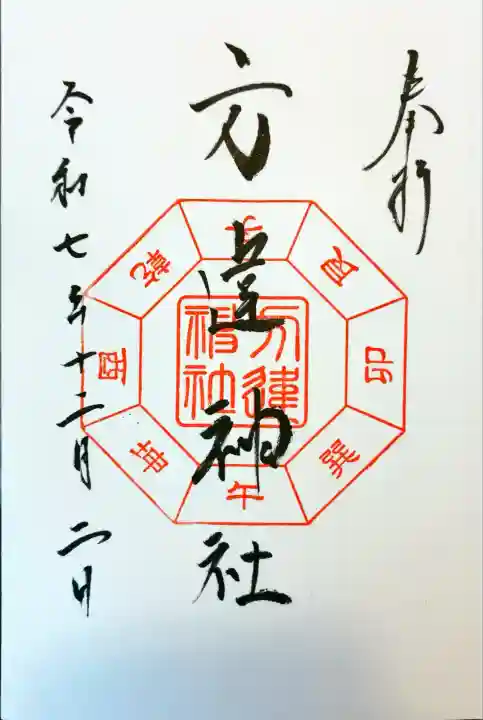 奉拝
方違神社
令和七年十二月二日
子
艮
卯
巽
午
坤
酉
乾
方違
神社